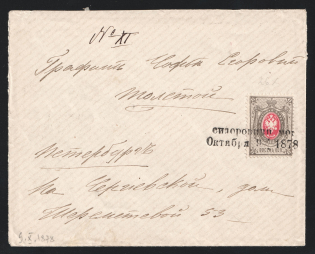 № XI
Графинѣ Софьѣ Егоровнѣ
Толстой
октября 9 1878
Петербургъ
На Сергіевской, домъ
Шереметевой 53
9.X.1878